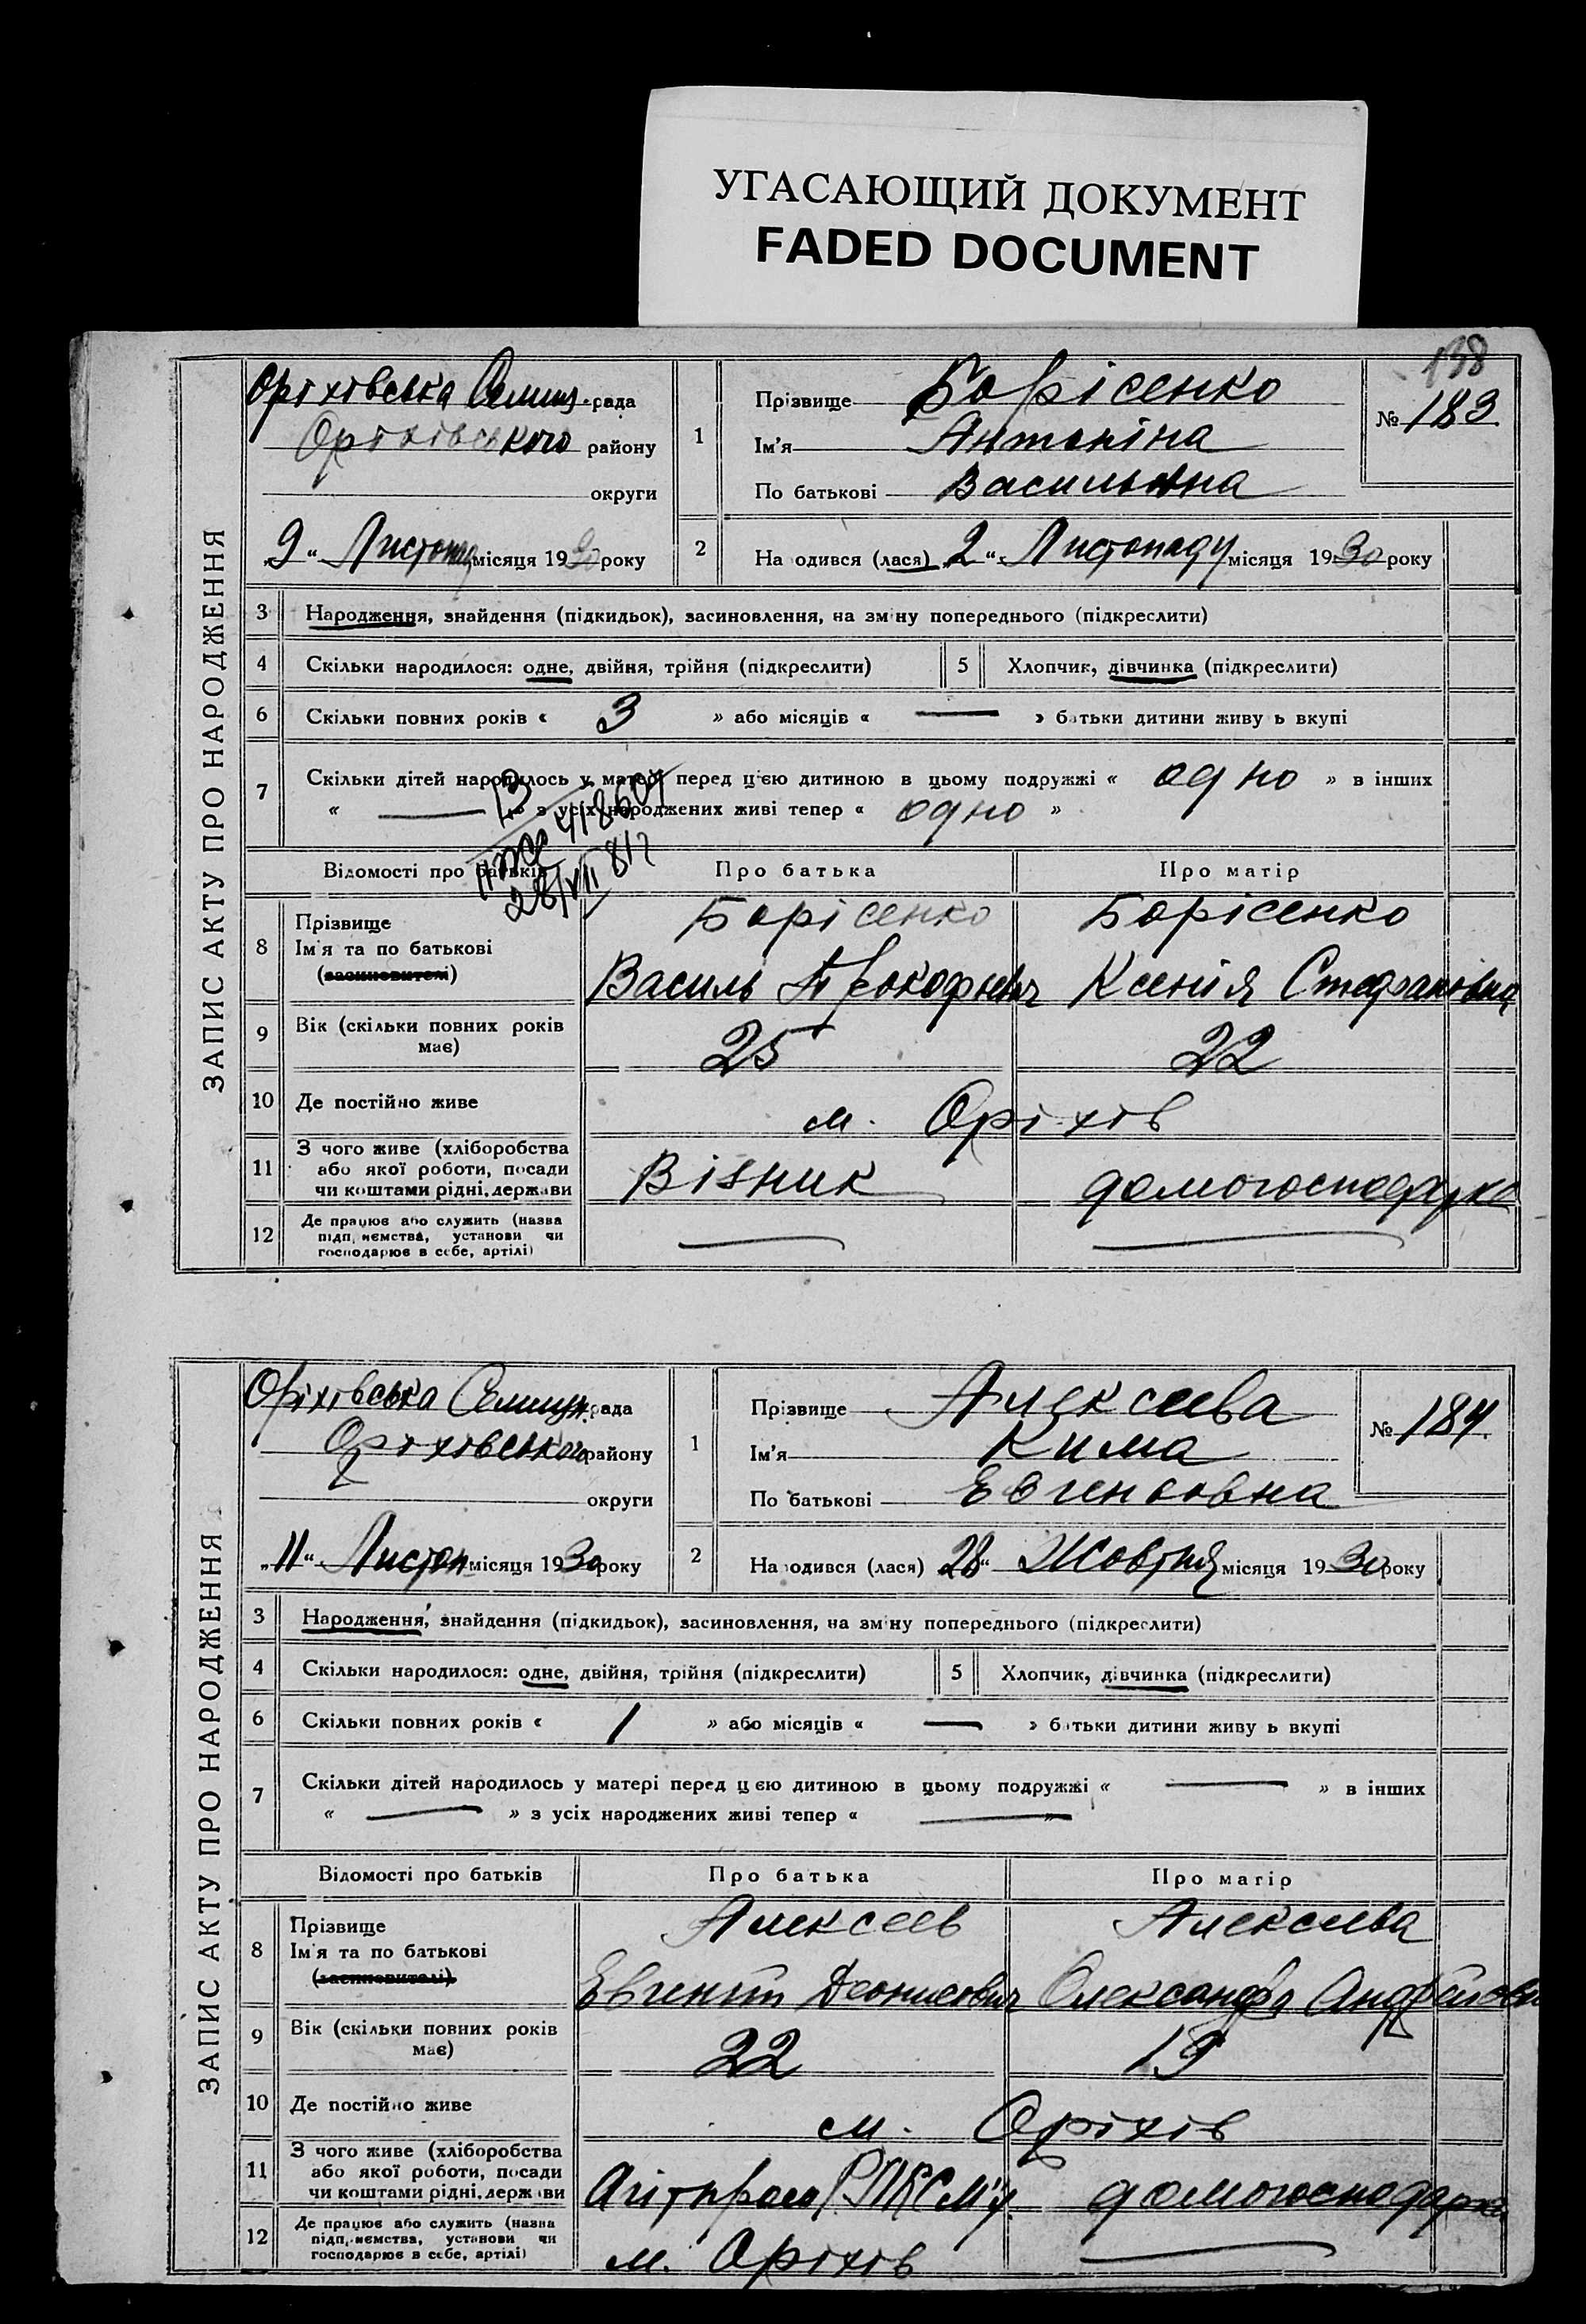 УГАСАЮЩИЙ ДОКУМЕНТ
FADED DOCUMENT
138
ЗАПИС АКТУ ПРО НАРОДЖЕННЯ
Оріхівська Селищ. рада
Оріхівського району
округи
„9“ Листопад місяця 1930 року
1
Прізвище Борісенко
Ім'я Антоніна
По батькові Васильовна
№ 183
2
На одився (лася) 2“ Листопаду місяця 1930 року
3 Народження, знайдення (підкидьок), засиновлення, на зміну попереднього (підкреслити)
4 Скільки народилося: одне, двійня, трійня (підкреслити) 5 Хлопчик, дівчинка (підкреслити)
6 Скільки повних років « 3 » або місяців « — » батьки дитини живу ь вкупі
7 Скільки дітей народилось у матері перед цією дитиною в цьому подружжі « одно » в інших
« — » з усіх народжених живі тепер « одно »
418609
28/VII 81
Відомості про батьків Про батька Про матір
8 Прізвище
Ім'я та по батькові
(засиновителі)
Борісенко Борісенко
Василь Прокофиевич Ксенія Стефановна
9 Вік (скільки повних років має)
25 22
10 Де постійно живе
м. Оріхів
11 З чого живе (хліборобства
або якої роботи, посади
чи коштами рідні, держави
Візник домогосподарка
12 Де працює або служить (назва
підприємства, установи чи
господарює в себе, артілі)
— —
ЗАПИС АКТУ ПРО НАРОДЖЕННЯ
Оріхівська Селищн. рада
Оріхівського району
округи
„11“ Листоп місяця 1930 року
1
Прізвище Алексеева
Ім'я Кима
По батькові Евгеновна
№ 184.
2
Народився (лася) 28“ Жовтня місяця 1930 року
3 Народження, знайдення (підкидьок), засиновлення, на зміну попереднього (підкреслити)
4 Скільки народилося: одне, двійня, трійня (підкреслити) 5 Хлопчик, дівчинка (підкреслити)
6 Скільки повних років « 1 » або місяців « — » батьки дитини живу ь вкупі
7 Скільки дітей народилось у матері перед цією дитиною в цьому подружжі « — » в інших
« — » з усіх народжених живі тепер « — »
Відомості про батьків Про батька Про матір
8 Прізвище
Ім'я та по батькові
(засиновителі)
Алексеев Алексеева
Евгений Деонисович Олександра Андрейовн
9 Вік (скільки повних років має)
22 19
10 Де постійно живе
м. Оріхів
11 З чого живе (хліборобства
або якої роботи, посади
чи коштами рідні, держави
домогосподарка
12 Де працює або служить (назва
підприємства, установи чи
господарює в себе, артілі)
м. Оріхів —